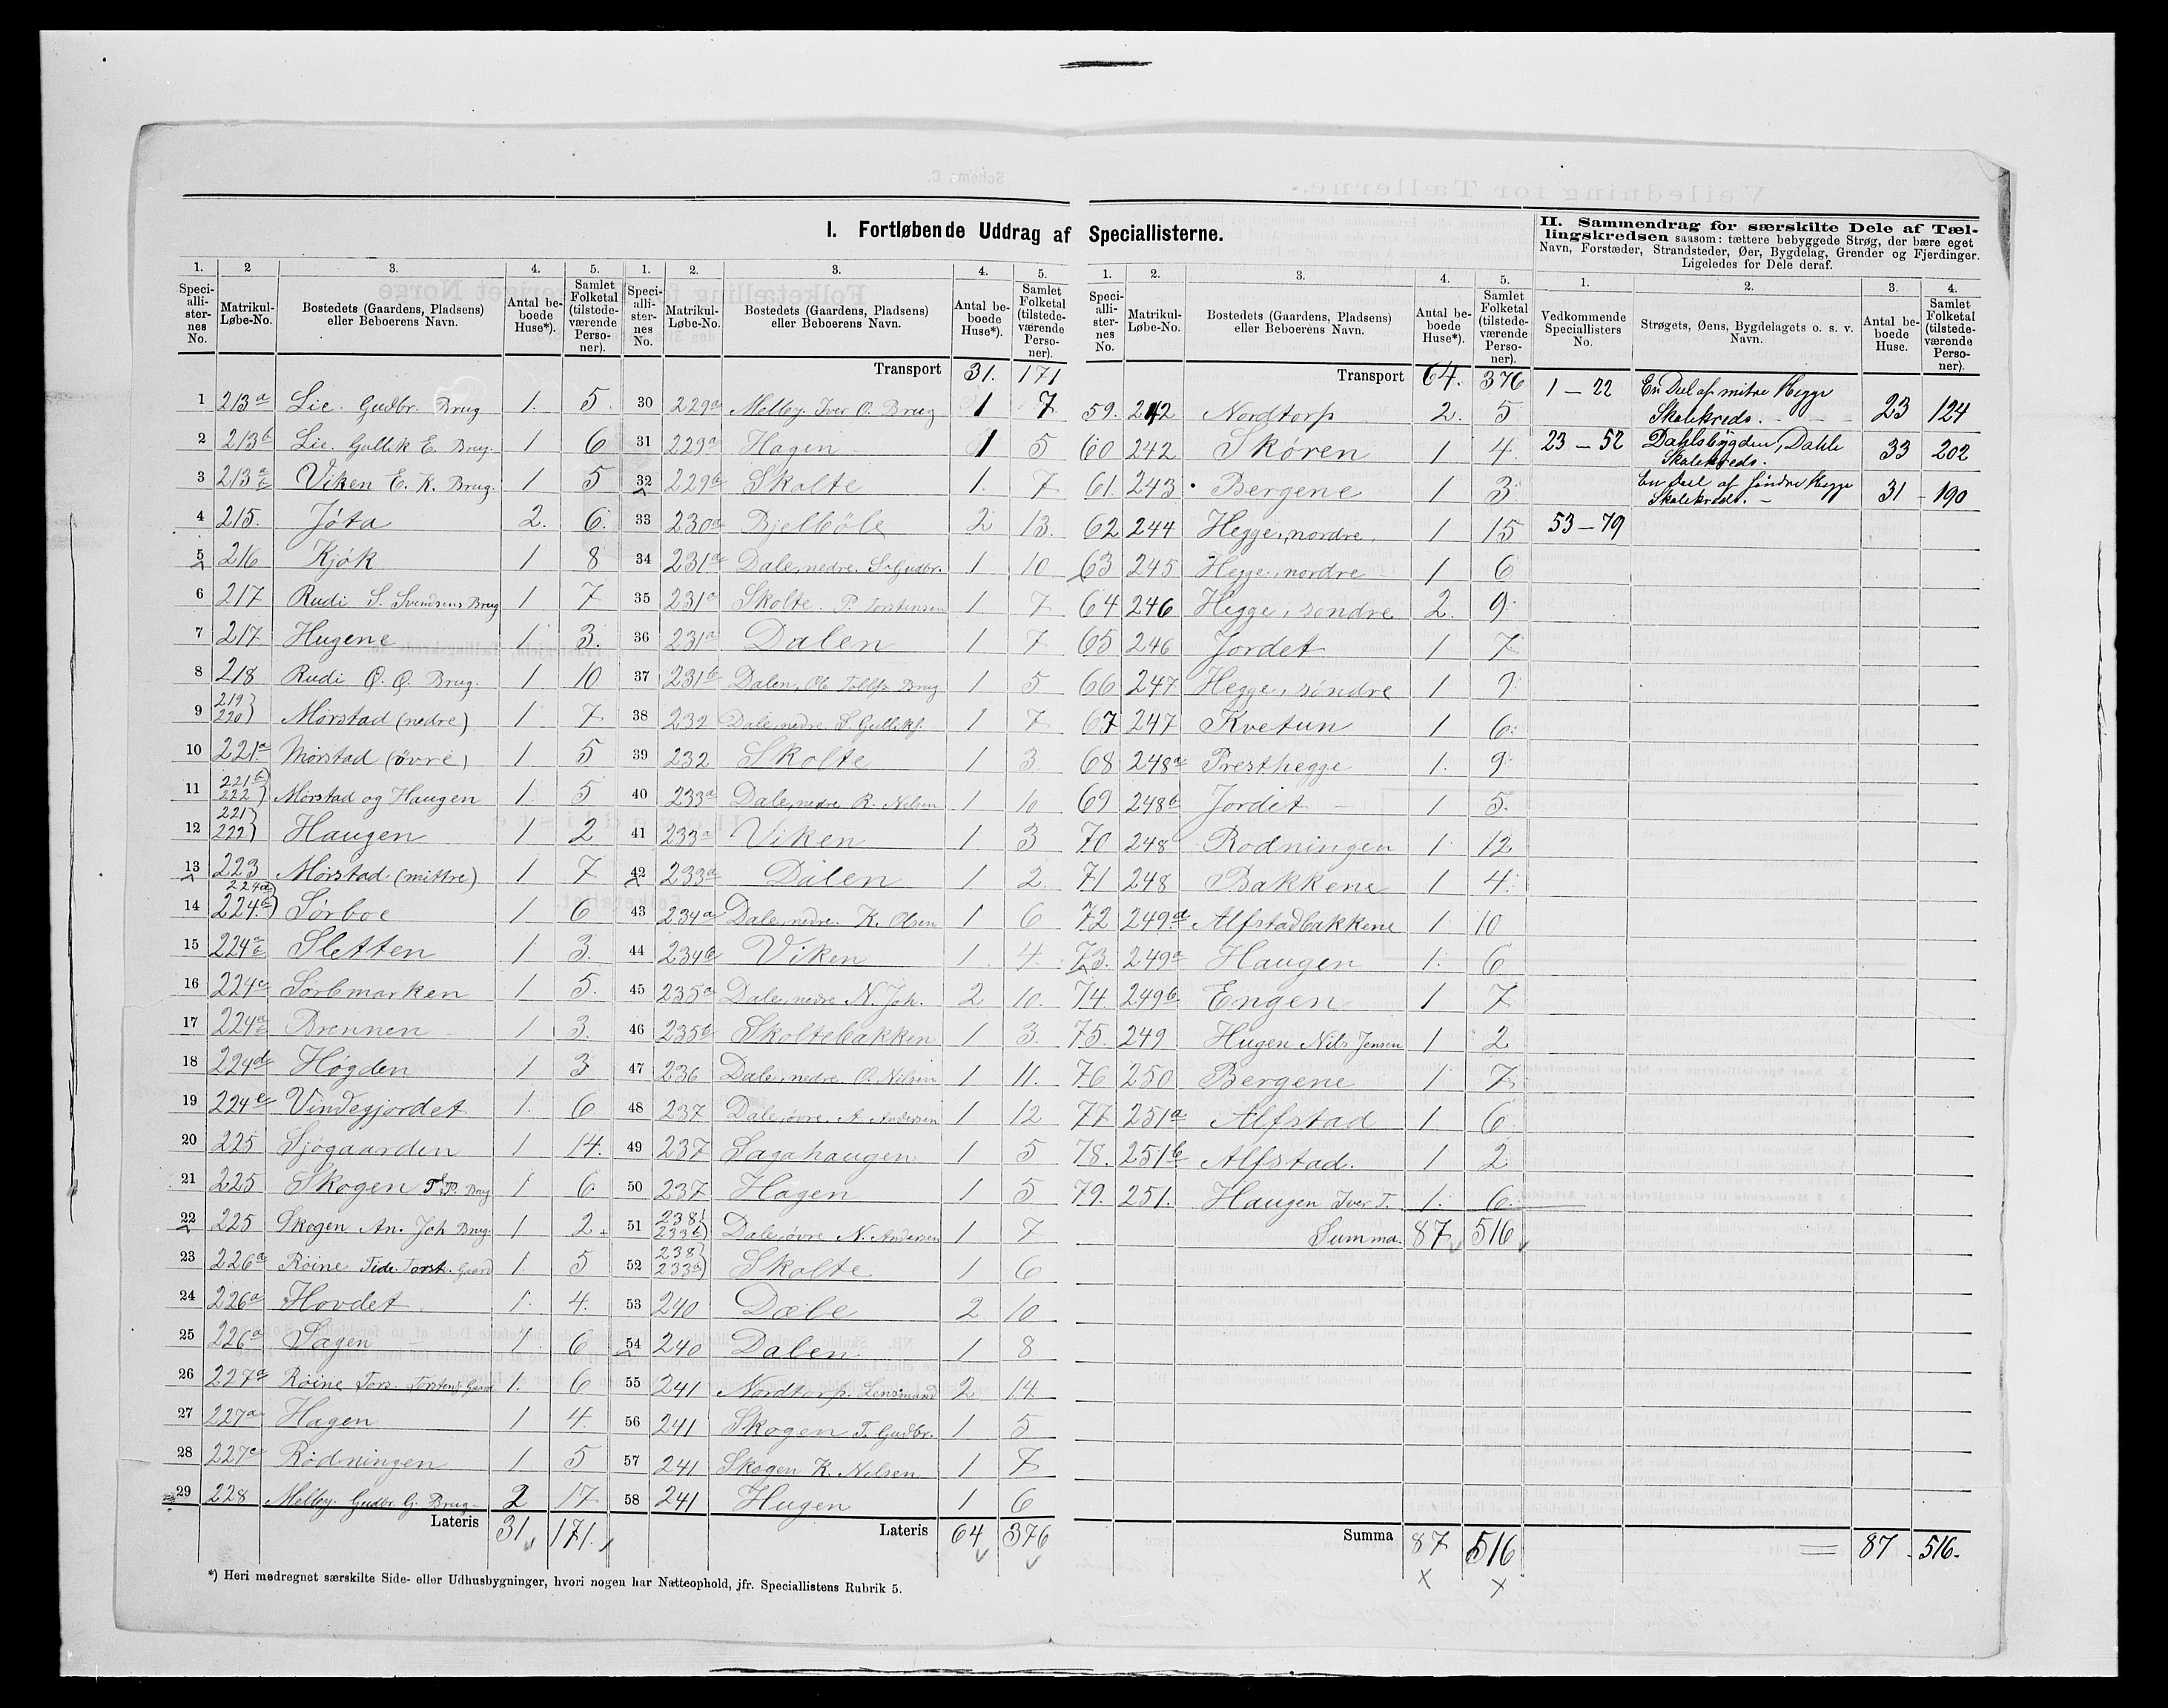 I. Fortløbende Uddrag af Speciallisterne.
1. 2 3. 4. 5.
Speciallisternes No. Matrikul-Løbe-No. Bostedets (Gaardens, Pladsens) eller Beboerens Navn. Antal beboede Huse*). Samlet Folketal (tilstedeværende Personer).
1 213a Lie. Gudbr. Brug 1. 5.
2 213b Lie. Gullik E. Brug. 1 6
3 213 Viken E. K. Brug. 1 5
4 215. Jóta 2. 6.
5 216 Kjók 1 8
6 217 Rudi S. Svendsens Brug 1 7
7 217. Hugene 1. 3.
8 218 Rudi O. O. Brug. 1 10
9 219 220) Mórstad (nedre) 1 7
10 221a Mórstad (óvre) 1 5
11 221b 222) Mórstad og Haugen 1. 5
12 221) 222) Haugen 1 2
13 223 Mórstad (mittre) 1 7
14 224a 224b) Sórboe 1 6
15 224 Sletten 1 3.
16 224c Sorbmarken 1 5.
17 224 Brennen 1 3.
18 224d Hógden 1 3
19 224e Vindegjordet 1. 6
20 225 Sjógaarden 1 14.
21 225 Skogen T. P. Brug 1 6
22 225 Skogen An. Joh Brug. 1 2
23 226a Róine Tide Torst. Gaard 1. 5
24 226a Hovdet 1. 4.
25 226a Sagen 1. 6
26 227a Róine Tors. Torstens Gaard 1. 6
27 227a Hagen 1 4.
28 227c Ródningen 1 5
29 228 Melby. Gudbr. G. Brug 2 17
Lateris 31 171.
1. 2. 3. 4. 5.
Speciallisternes No. Matrikul-Løbe-No. Bostedets (Gaardens, Pladsens) eller Beboerens Navn. Antal beboede Huse*). Samlet Folketal (tilstedeværende Personer).
Transport 31. 171
30 229a Melby. Iver O. Brug 1 7
31 229a Hagen 1 5
32 229b Skolte 1. 7
33 230a Bjelbóle 2 13.
34 231a Dale, nedre. S. Gudbr. 1 10
35 231a Skolte. P. Torstensen 1. 7
36 231a Dalen 1 7
37 231b Dalen, Ole Tollfs Brug 1 5
38 232 Dale, nedre S Gulliks. 1 7
39 232 Skolte 1 3.
40 233a Dale, nedre R. Nilsen 1 10
41 233a Viken 1. 3
42 233a Dalen 1 2.
43 234a Dale, nedre. K. Olsen 1 6
44 234b Viken 1. 4.
45 235a Dale, nedre N. Joh. 2 10.
46 235b Skoltebakken 1 3.
47 236 Dale, nedre O. Nilsen 1 11.
48 237 Dale, óvre. A. Andersen 1 12
49 237 Sagahaugen 1 5
50 237 Hagen 1 5
51 238) 233b) Dale, óvre N. Andersen 1 7
52 238) 233b) Skolte 1 6
53 240 Dæle 2 10
54 240 Dalen 1 8
55 241 Nordtorp. Lensmand 2 14
56 241 Skogen T. Gudbr. 1. 5
57 241 Skogen K. Nilsen 1 7
58 241 Hugen 1 6
Lateris 64 376
1. 2. 3. 4. 5.
Speciallisternes No. Matrikul-Løbe-No. Bostedets (Gaardens, Pladsens) eller Beboerens Navn. Antal beboede Huse*). Samlet Folketal (tilstedeværende Personer).
Transport 64. 376
59. 242 Nordtorp 2. 5
60 242 Skóren 1 4.
61. 243 Bergene 1 3
62 244 Hegge, nordre. 1 15
63 245 Hegge, nordre 1 6
64 246 Hegge, sondre 2. 9.
65 246 Jordet 1 7
66 247 Hegge, sóndre 1 9
67 247 Kvetun 1 6.
68 248a Presthegge 1. 9
69 248b Jordet 1 5.
70 248 Rodningen 1 12
71 248 Bakkene 1 4.
72 249a Alfstadbakkene 1 10
73. 249a Haugen 1. 6
74. 249b Engen 1 7
75. 249 Hugen Nils Jensen 1 2
76 250 Bergene 1 7
77 251a Alfstad 1 6
78. 251b Alfstad. 1 2
79. 251. Haugen Iver T. 1. 6.
Summa. 87 516
Summa 87 516
II. Sammendrag for særskilte Dele af Tællingskredsen saasom: tættere bebyggede Strøg, der bære eget Navn, Forstæder, Strandsteder, Øer, Bygdelag, Grender og Fjerdinger. Ligeledes for Dele deraf.
1. 2. 3. 4.
Vedkommende Speciallisters No. Strøgets, Øens, Bygdelagets o. s. v. Navn. Antal beboede Huse. Samlet Folketal (tilstedeværende Personer).
1 — 22 En Deel af mitre Hegge Skolekreds. 23 124
23 — 52 Dahlsbygden, Dahle Skolekreds. 33 202
53 — 79 En Deel af sindre Hegge Skolekreds. 31 190
87 516.
*) Heri medregnet særskilte Side- eller Udhusbygninger, hvori nogen har Natteophold, jfr. Speciallistens Rubrik 5.